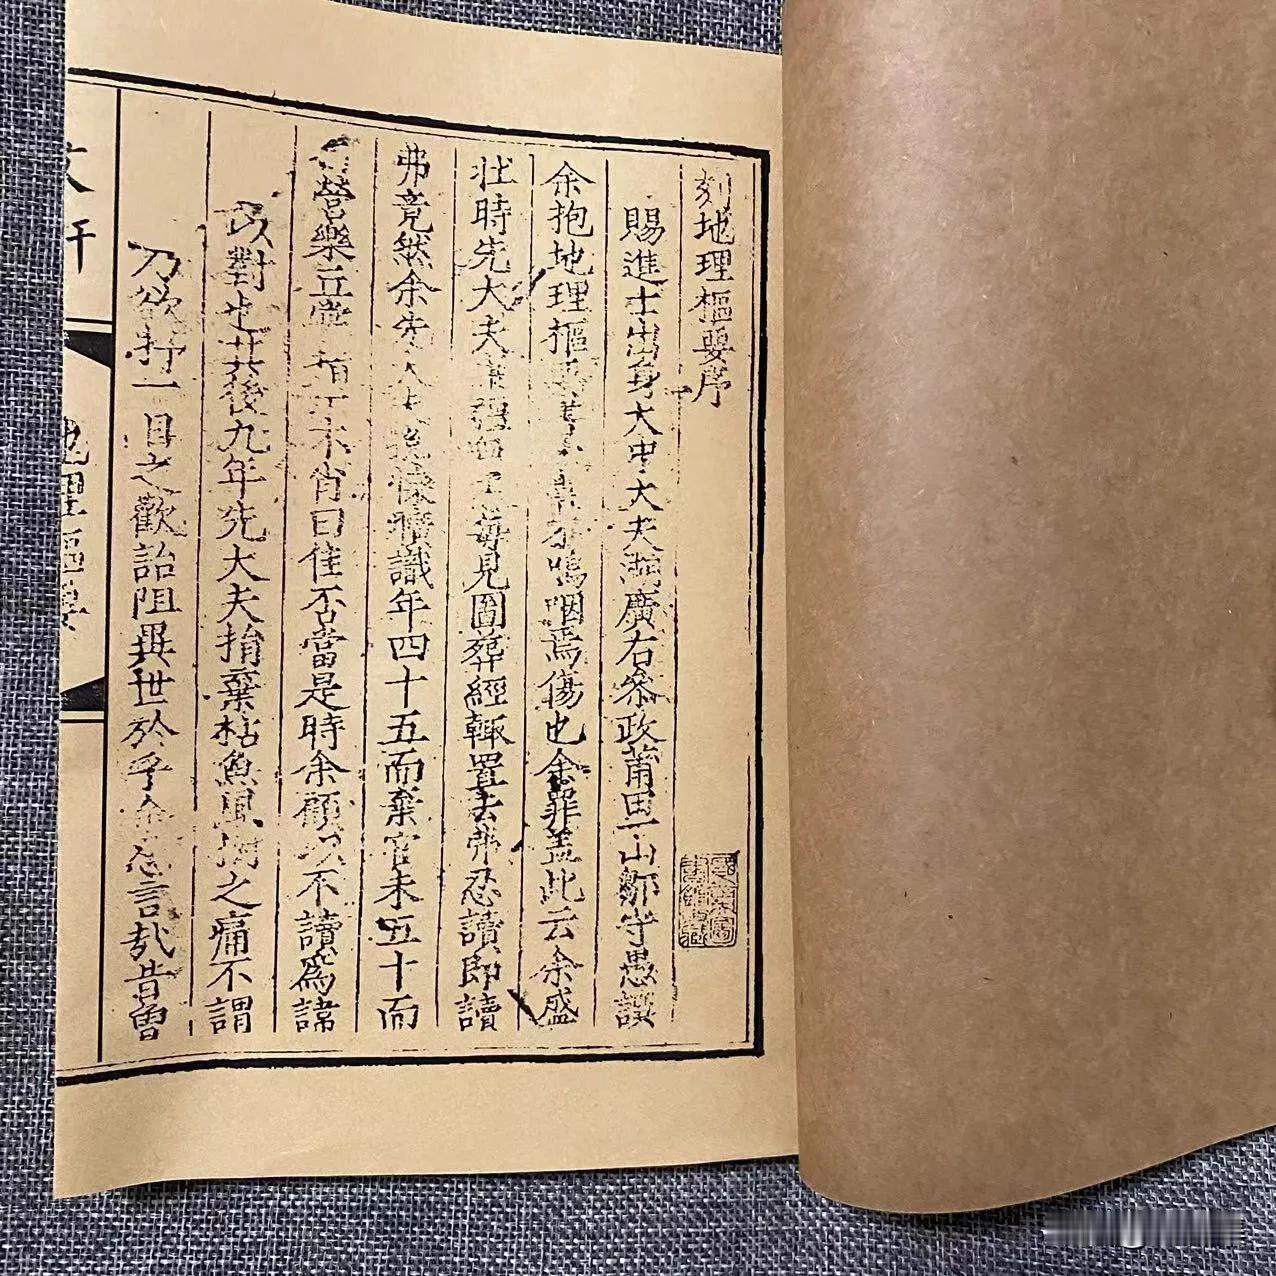 刻地理樞要序
賜進士出身大中大夫湖廣右參政莆田一山鄒守愚譔
余抱地理樞嗚咽焉傷也余罪蓋此云余盛
壯時先大夫每見圖葬經輒置去弗忍讀即讀
弗竟然余先識年四十五而棄官未五十而
營樂丘不肖曰佳否當是時余顧以不讀爲諱
以對也其後九年先大夫捐棄枯魚風樹之痛不謂
乃欲抒一目之歡詒阻異世於乎言哉昔曾
地理樞要